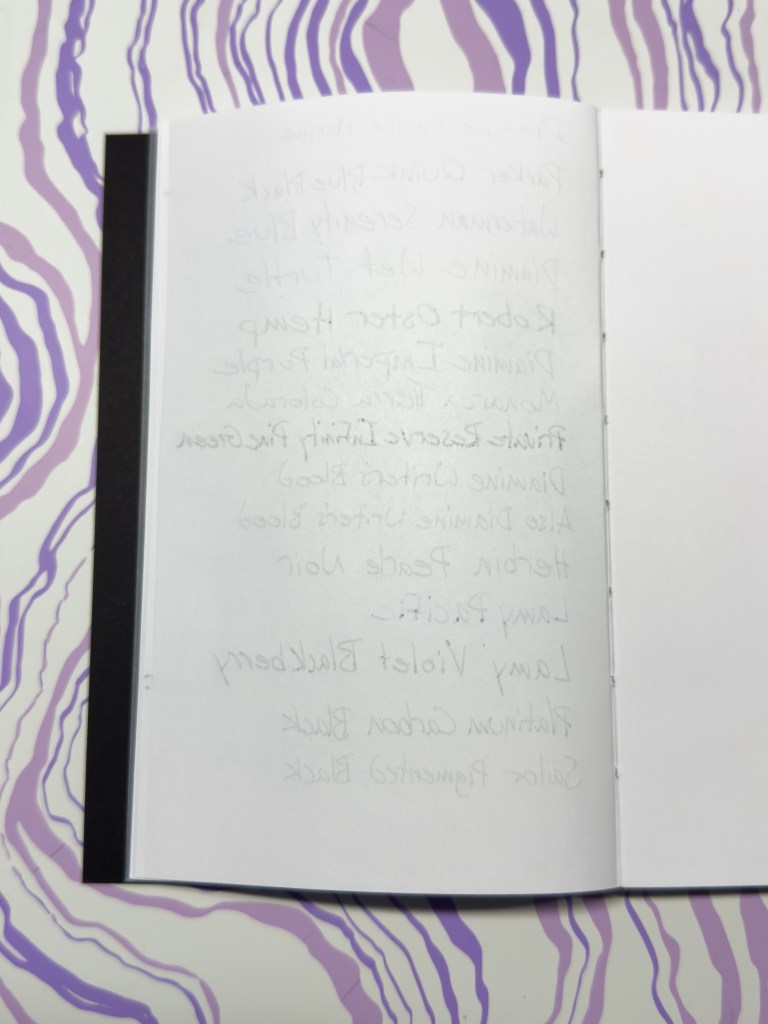 Parker Quink Blue Black
Waterman Serenity Blue
Diamine Wet Turtle
Robert Oster Hemp
Diamine Imperial Purple
Monarca Tierra Colorada
Private Reserve Infinity Pine Green
Diamine Writer's Blood
Also Diamine Writer's Blood
Herbin Pearle Noir
Lamy Pacific
Lamy Violet Blackberry
Platinum Carbon Black
Sailor Pigmented Black